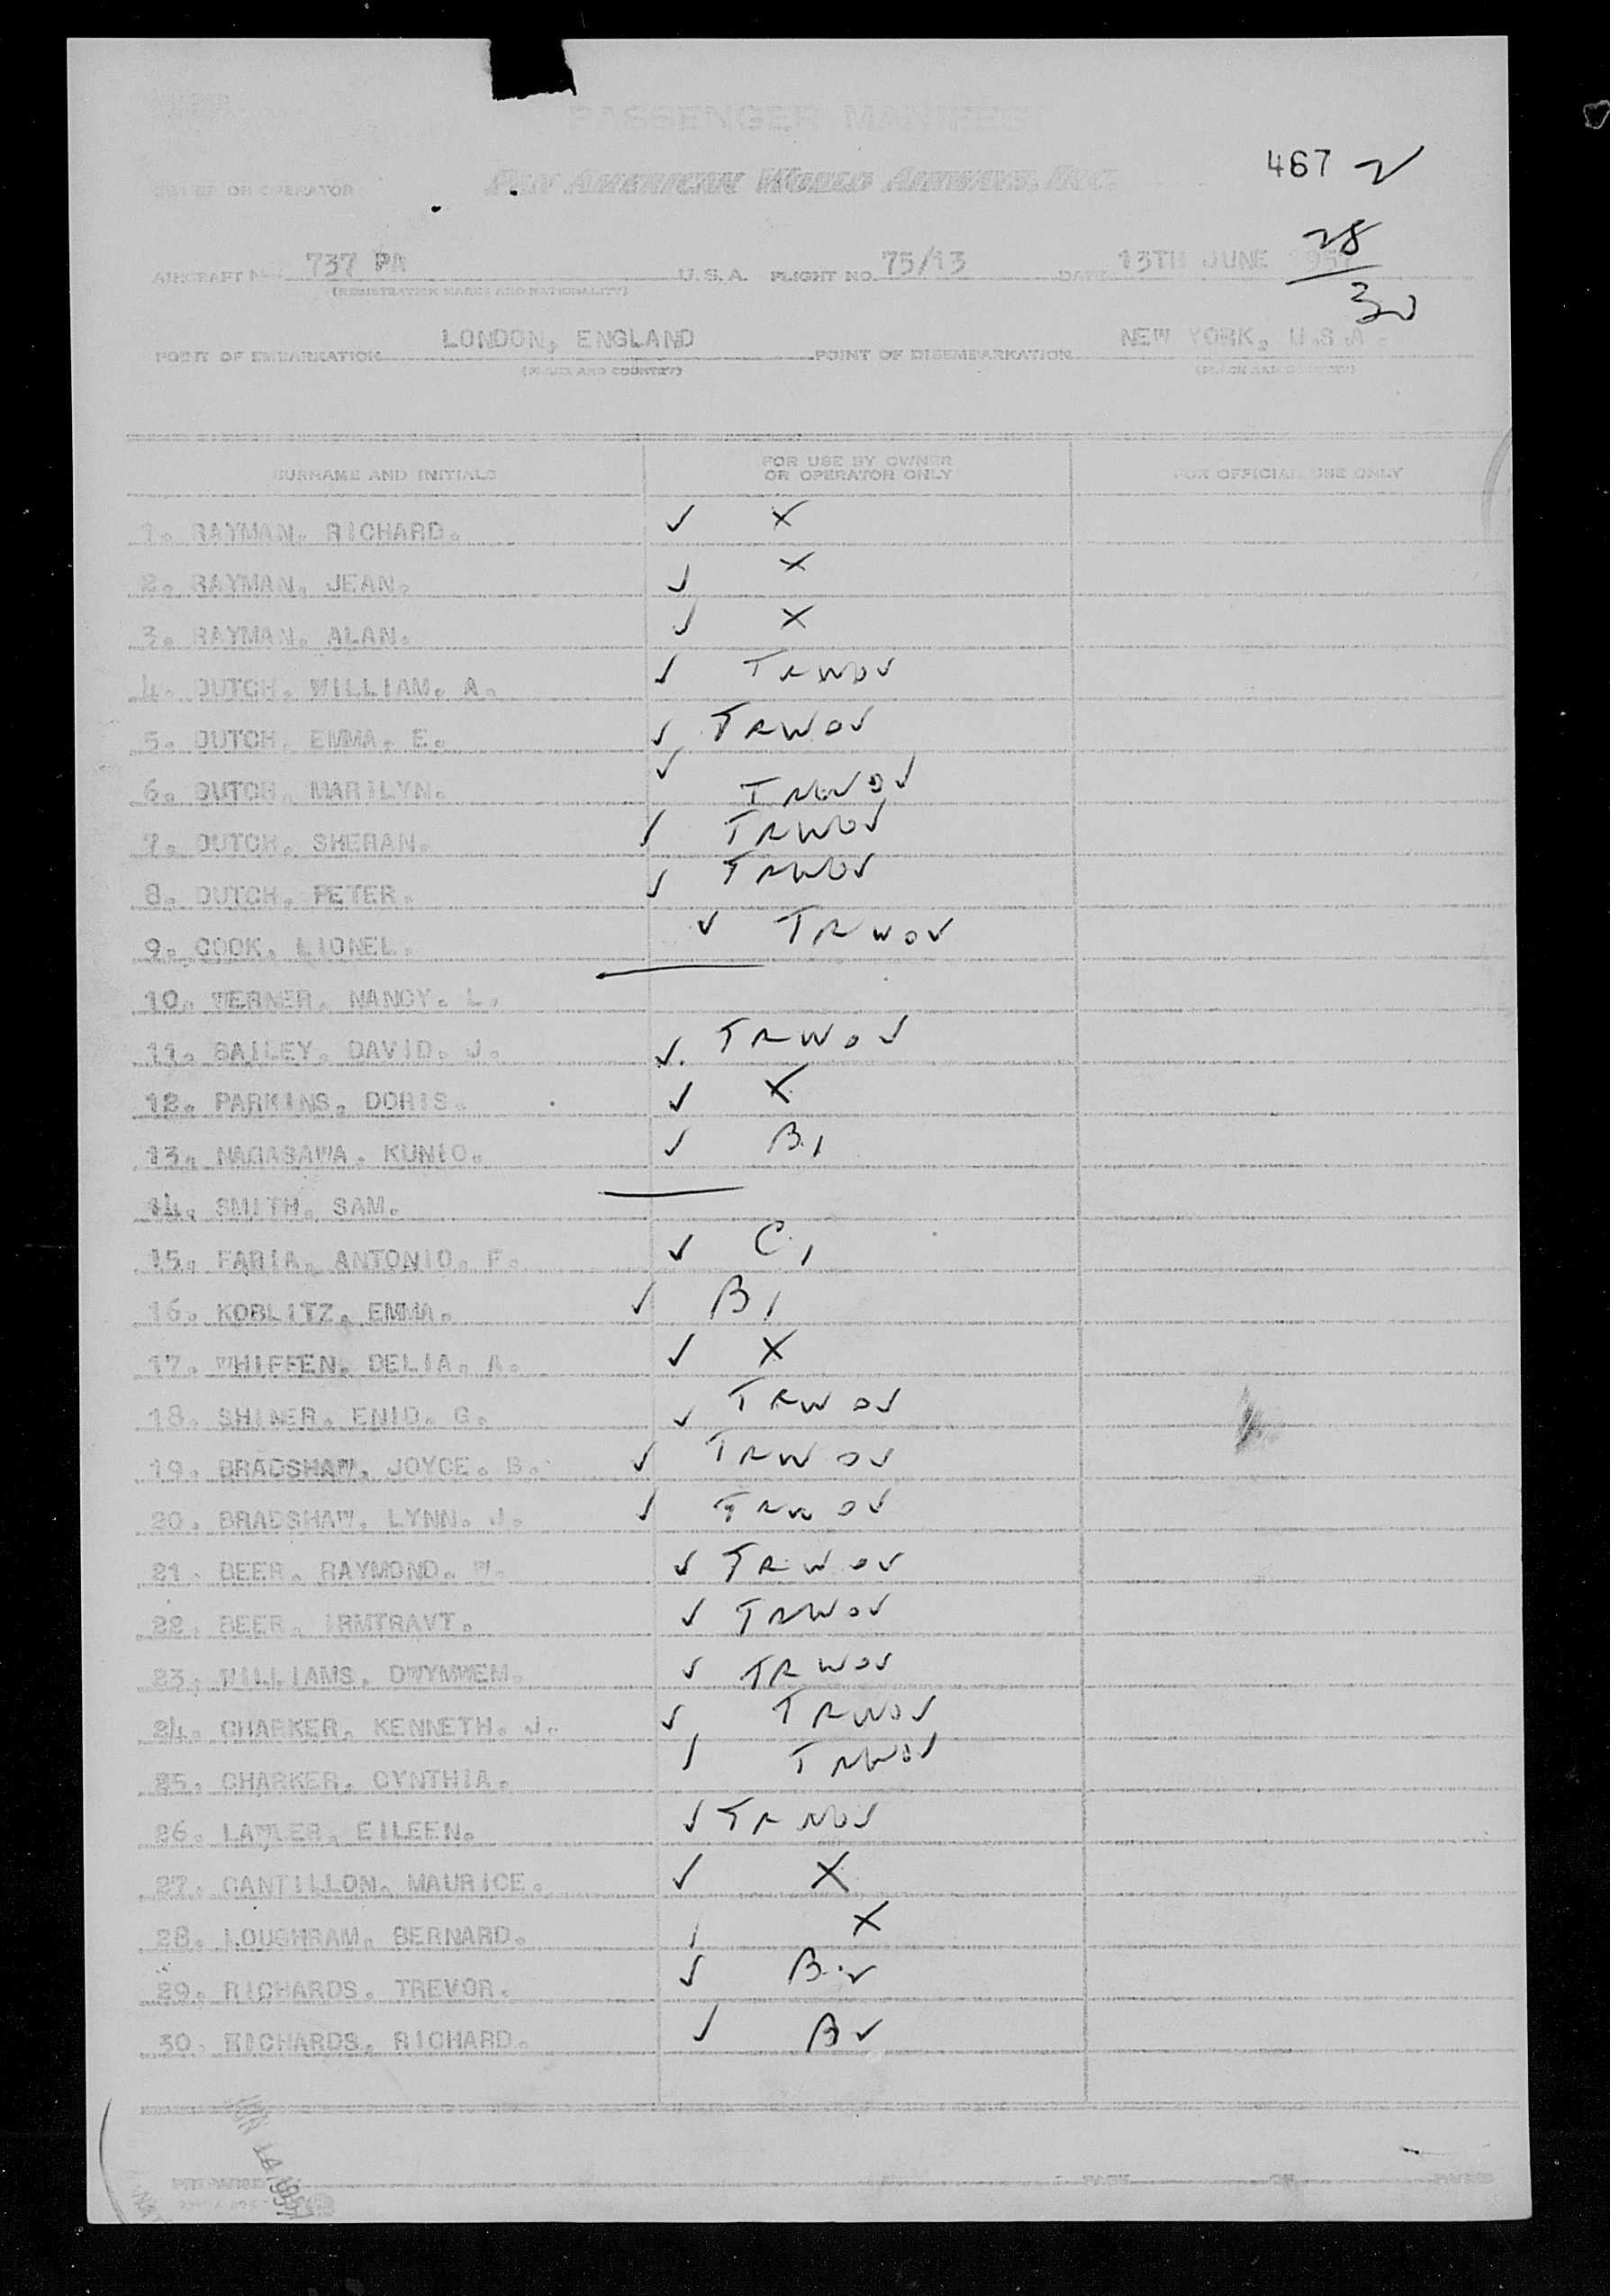 PASSENGER MANIFEST
467 2
OWNER OR OPERATOR PAN AMERICAN WORLD AIRWAYS, INC.
28
30
AIRCRAFT No. 737 PA U.S.A. FLIGHT NO. 75/13 DATE 13TH JUNE
(REGISTRATION MARKS AND NATIONALITY)
POINT OF EMBARKATION LONDON, ENGLAND POINT OF DISEMBARKATION NEW YORK, U.S.A.
(PLACE AND COUNTRY) (PLACE AND COUNTRY)
SURNAME AND INITIALS FOR USE BY OWNER OR OPERATOR ONLY FOR OFFICIAL USE ONLY
1. RAYMAN. RICHARD. ✓ X
2. RAYMAN. JEAN. ✓ X
3. RAYMAN. ALAN. ✓ X
4. DUTCH. WILLIAM. A. ✓ TRWOV
5. DUTCH. EMMA. E. ✓ TRWOV
6. DUTCH. MARILYN. ✓ TRWOV
7. DUTCH. SHERAN. ✓ TRWOV
8. DUTCH. PETER. ✓ TRWOV
9. COOK. LIONEL. ✓ TRWOV
10. WERNER. NANCY. L.
11. BAILEY. DAVID. J. ✓ TRWOV
12. PARKINS. DORIS. ✓ X
13. NAGASAWA. KUNIO. ✓ B1
14. SMITH. SAM.
15. FARIA. ANTONIO. F. ✓ C1
16. KOBLITZ. EMMA. ✓ B1
17. WHIFFEN. DELIA. A. ✓ X
18. SHINER. ENID. G. ✓ TRWOV
19. BRADSHAW. JOYCE. B. ✓ TRWOV
20. BRADSHAW. LYNN. J. ✓ TRWOV
21. BEER. RAYMOND. W. ✓ TRWOV
22. BEER. IRMTRAVT. ✓ TRWOV
23. WILLIAMS. DWYMWEM. ✓ TRWOV
24. CHARKER. KENNETH. J. ✓ TRWOV
25. CHARKER. CYNTHIA. ✓ TRWOV
26. LAWLER. EILEEN. ✓ TRWOV
27. CANTILLON. MAURICE. ✓ X
28. LOUGHRAM. BERNARD. X
29. RICHARDS. TREVOR. ✓ B2
30. RICHARDS. RICHARD. ✓ B2
PAGE OF PAGES